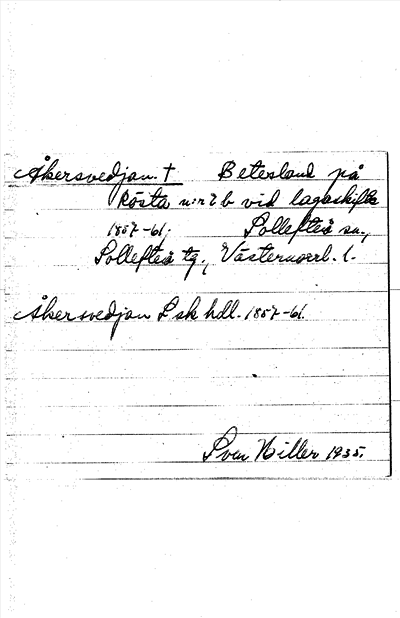 Åkersvedjan. † Betesland på
Rösta n:r 2 b vid lagaskifte
1857-61. Sollefteå sn.,
Sollefteå tg., Västernorrl. l.
Åkersvedjan L sk hdl. 1857-61.
Sven Hiller 1935.